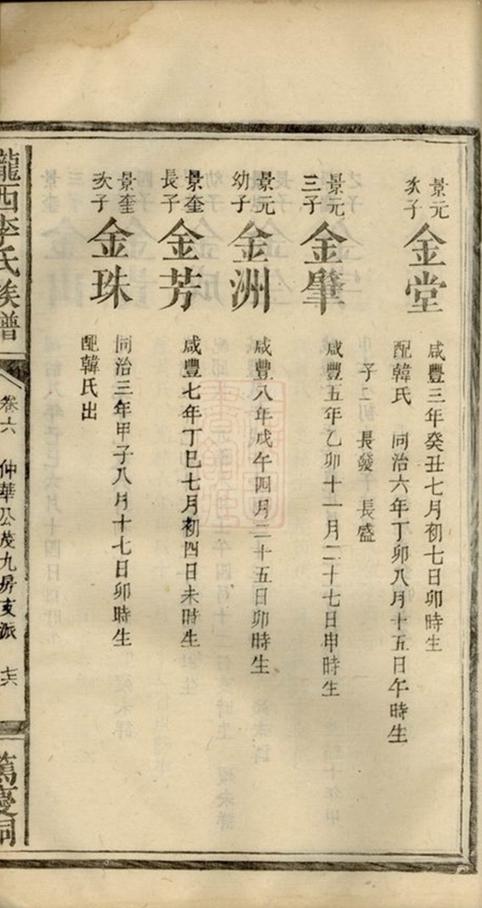 景元
次子
金堂
咸豐三年癸丑七月初七日卯時生
配韓氏 同治六年丁卯八月十五日午時生
子二 長發 長盛
景元
三子
金肇
咸豐五年乙卯十一月二十七日申時生
景元
幼子
金洲
咸豐八年戊午四月二十五日卯時生
景奎
長子
金芳
咸豐七年丁巳七月初四日未時生
景奎
次子
金珠
同治三年甲子八月十七日卯時生
配韓氏出
隴西李氏族譜
卷六 仲華公茂九房支派
萬慶祠